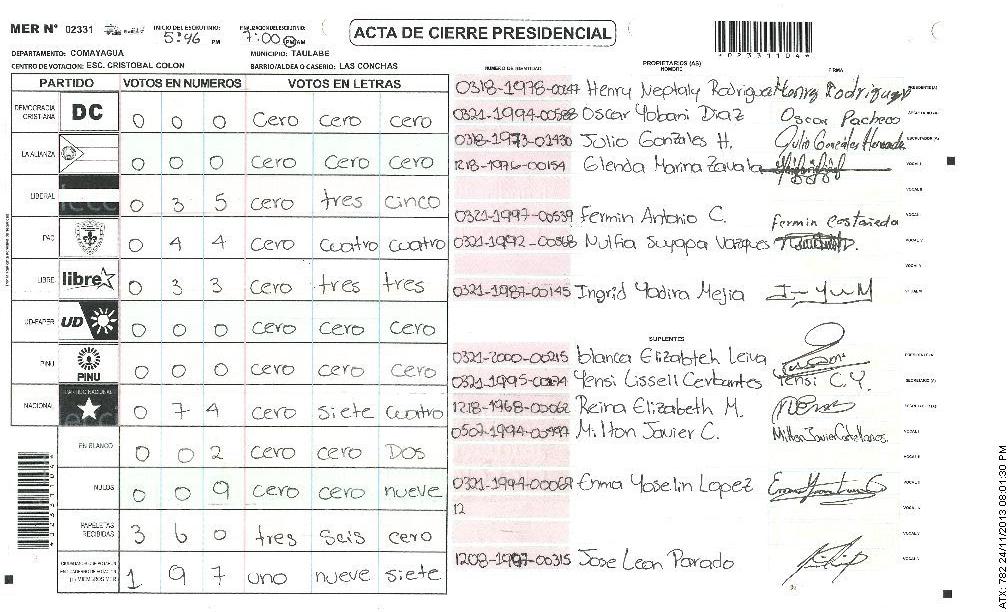 MER Nº 02331 INICIO DEL ESCRUTINIO: 5:46 PM FINALIZACION DEL ESCRUTINIO: 7:00 PM AM
ACTA DE CIERRE PRESIDENCIAL
*02331104*
DEPARTAMENTO: COMAYAGUA MUNICIPIO: TAULABE
CENTRO DE VOTACION: ESC. CRISTOBAL COLON BARRIO/ALDEA O CASERIO: LAS CONCHAS
PARTIDO VOTOS EN NUMEROS VOTOS EN LETRAS
DEMOCRACIA CRISTIANA DC 0 0 0 cero cero cero
LA ALIANZA 0 0 0 cero cero cero
LIBERAL 0 3 5 cero tres cinco
PAC 0 4 4 cero cuatro cuatro
LIBRE libre 0 3 3 cero tres tres
UD-FAPER UD 0 0 0 cero cero cero
PINU PINU 0 0 0 cero cero cero
NACIONAL 0 7 4 cero siete cuatro
EN BLANCO 0 0 2 cero cero Dos
NULOS 0 0 9 cero cero nueve
PAPELETAS RECIBIDAS 3 6 0 tres seis cero
1 9 7 uno nueve siete
NUMERO DE IDENTIDAD PROPIETARIOS (AS) NOMBRE FIRMA
Henry Neptaly Rodriguez Henry Rodriguez
Oscar Yobani Diaz Oscar Pacheco
0318-1973-01430 Julio Gonzales H. Julio Gonzáles
1218-1976-00154 Glenda Marina Zavala
0321-1997-00539 Fermin Antonio C. Fermin Castañeda
0321-1992-00568 Nulfia Suyapa Vazques
0321-1987-00145 Ingrid Yadira Mejia
SUPLENTES
0321-2000-00215 blanca Elizabteh Leiva
Yensi Lissell Cerbantes Yensi C.Y.
1218-1968-00062 Reina Elizabeth M.
Milton Javier C. Milton Javier Castellanos
0321-1994-00069 Enma Yoselin Lopez
12
1208-1987-00315 Jose Leon Parado
ATX: 782 24/11/2013 08:01:30 PM